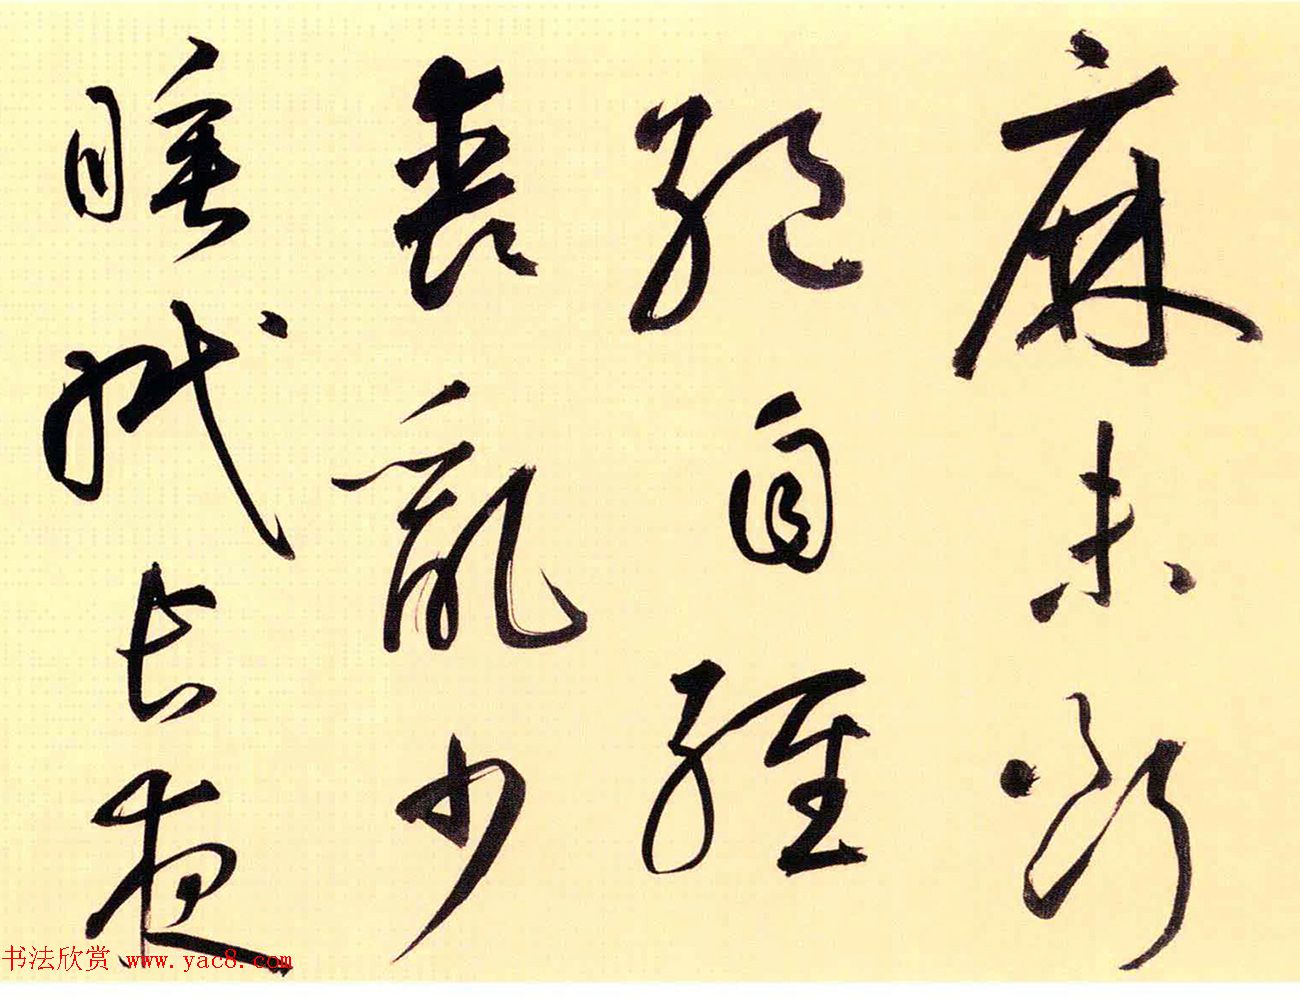 麻未断
绝自经
丧乱少
睡眠长夜
书法欣赏 www.yac8.com